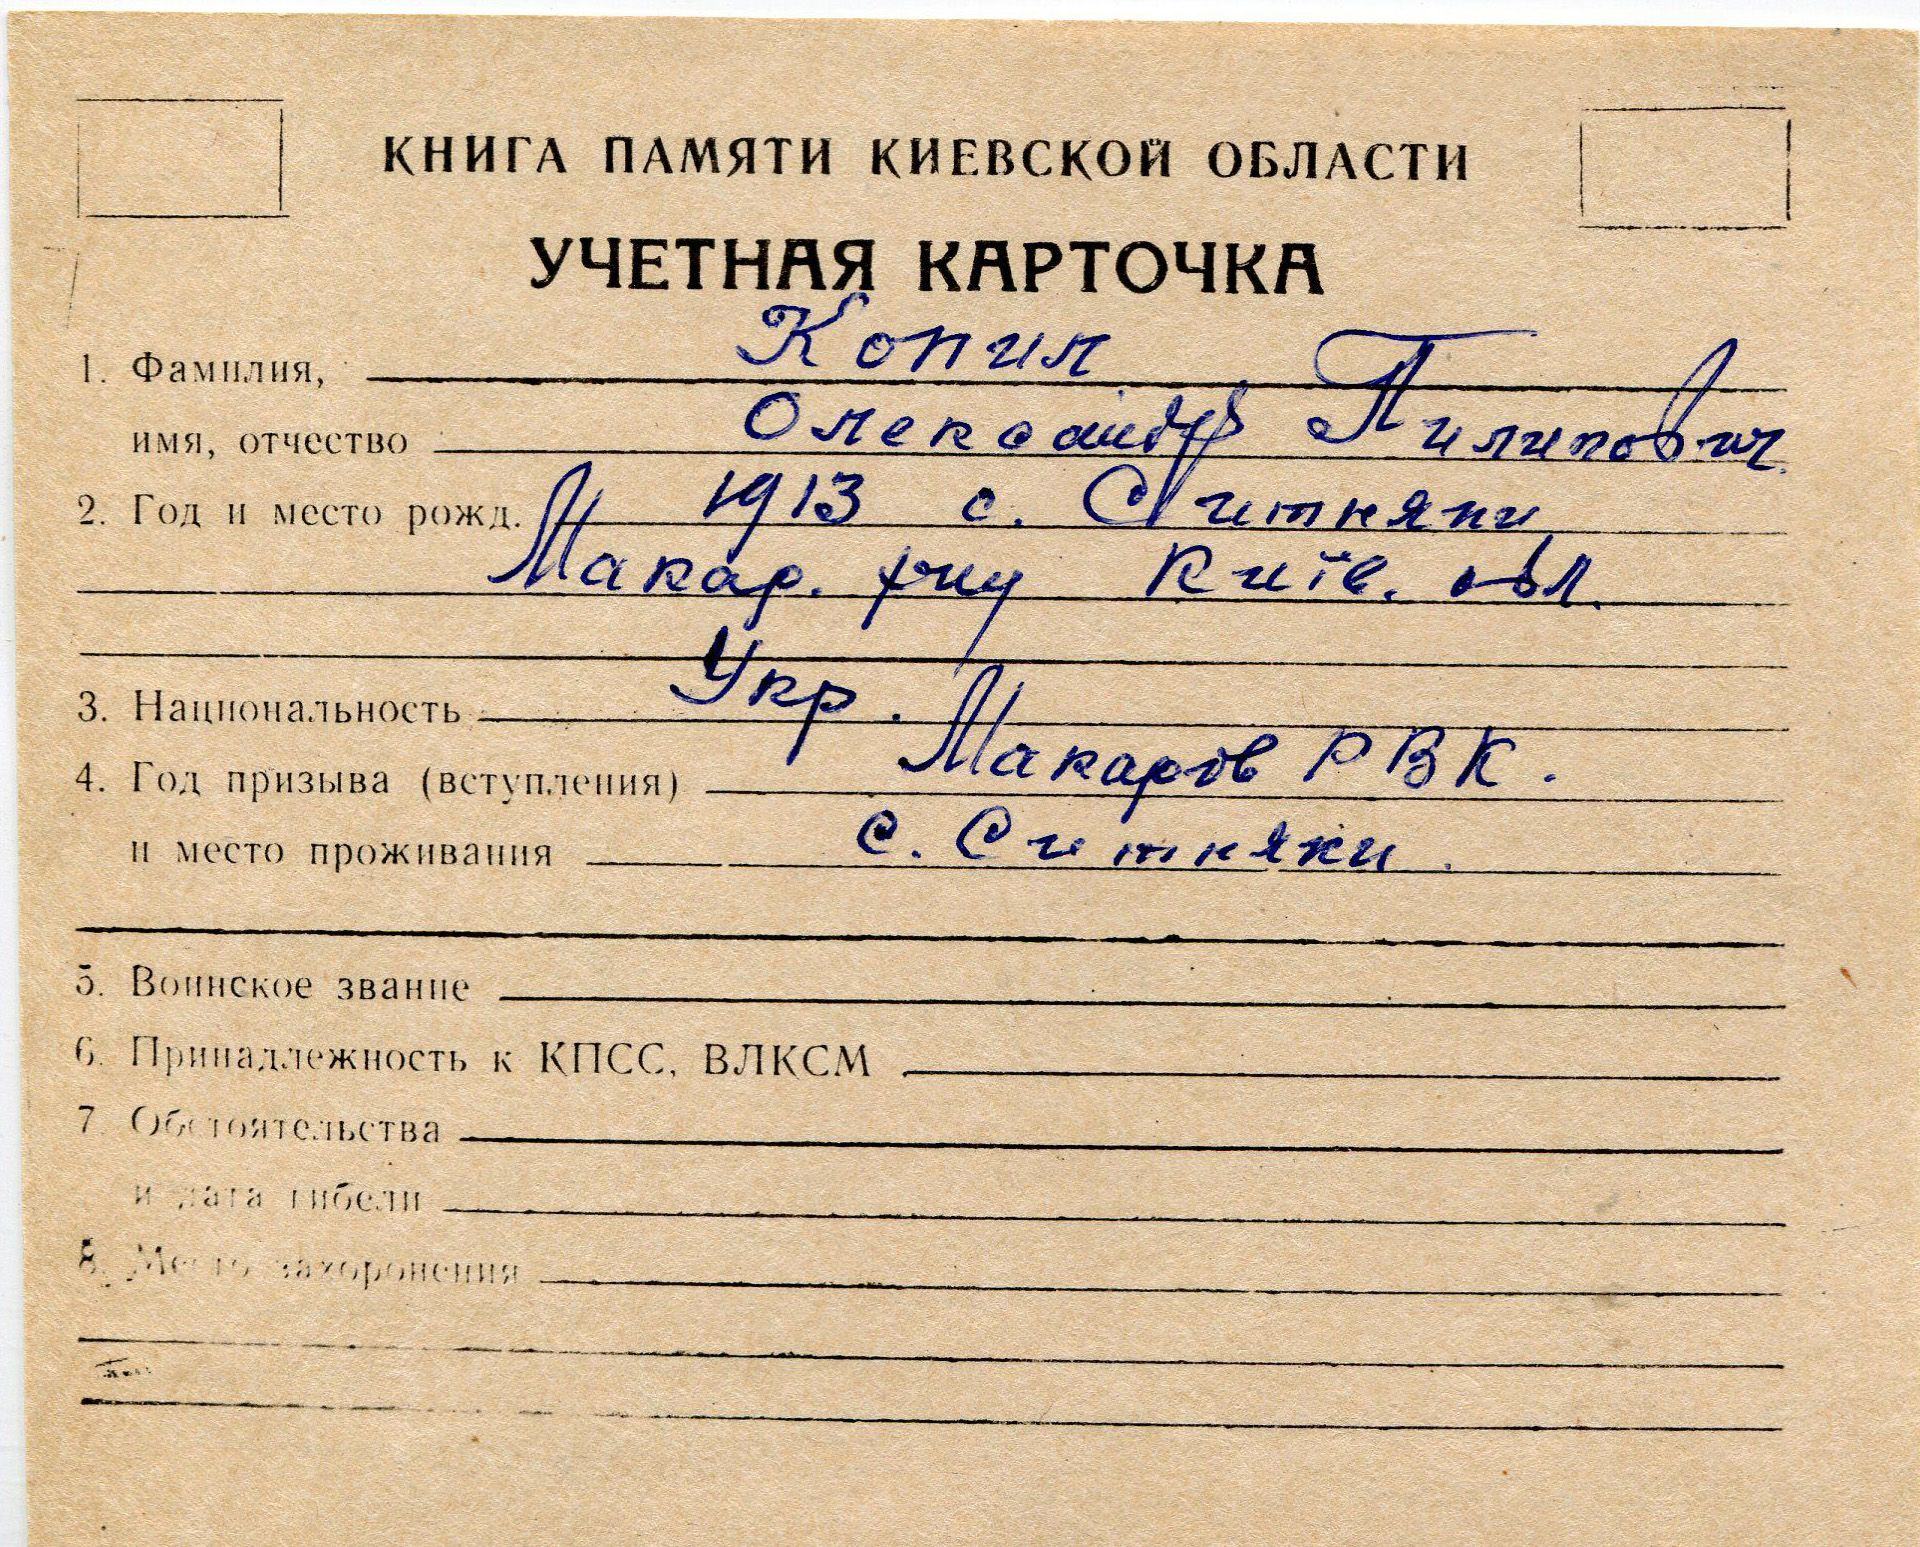 КНИГА ПАМЯТИ КИЕВСКОЙ ОБЛАСТИ
УЧЕТНАЯ КАРТОЧКА
1. Фамилия, Копил
имя, отчество Олександр Пилипович
2. Год и место рожд. 1913 с. Ситняки
Макар. р-ну Київ. обл.
3. Национальность Укр.
4. Год призыва (вступления) Макаров РВК.
и место проживания с. Ситняки.
5. Воинское звание
6. Принадлежность к КПСС, ВЛКСМ
7. Обстоятельства
и дата гибели
8. Место захоронения